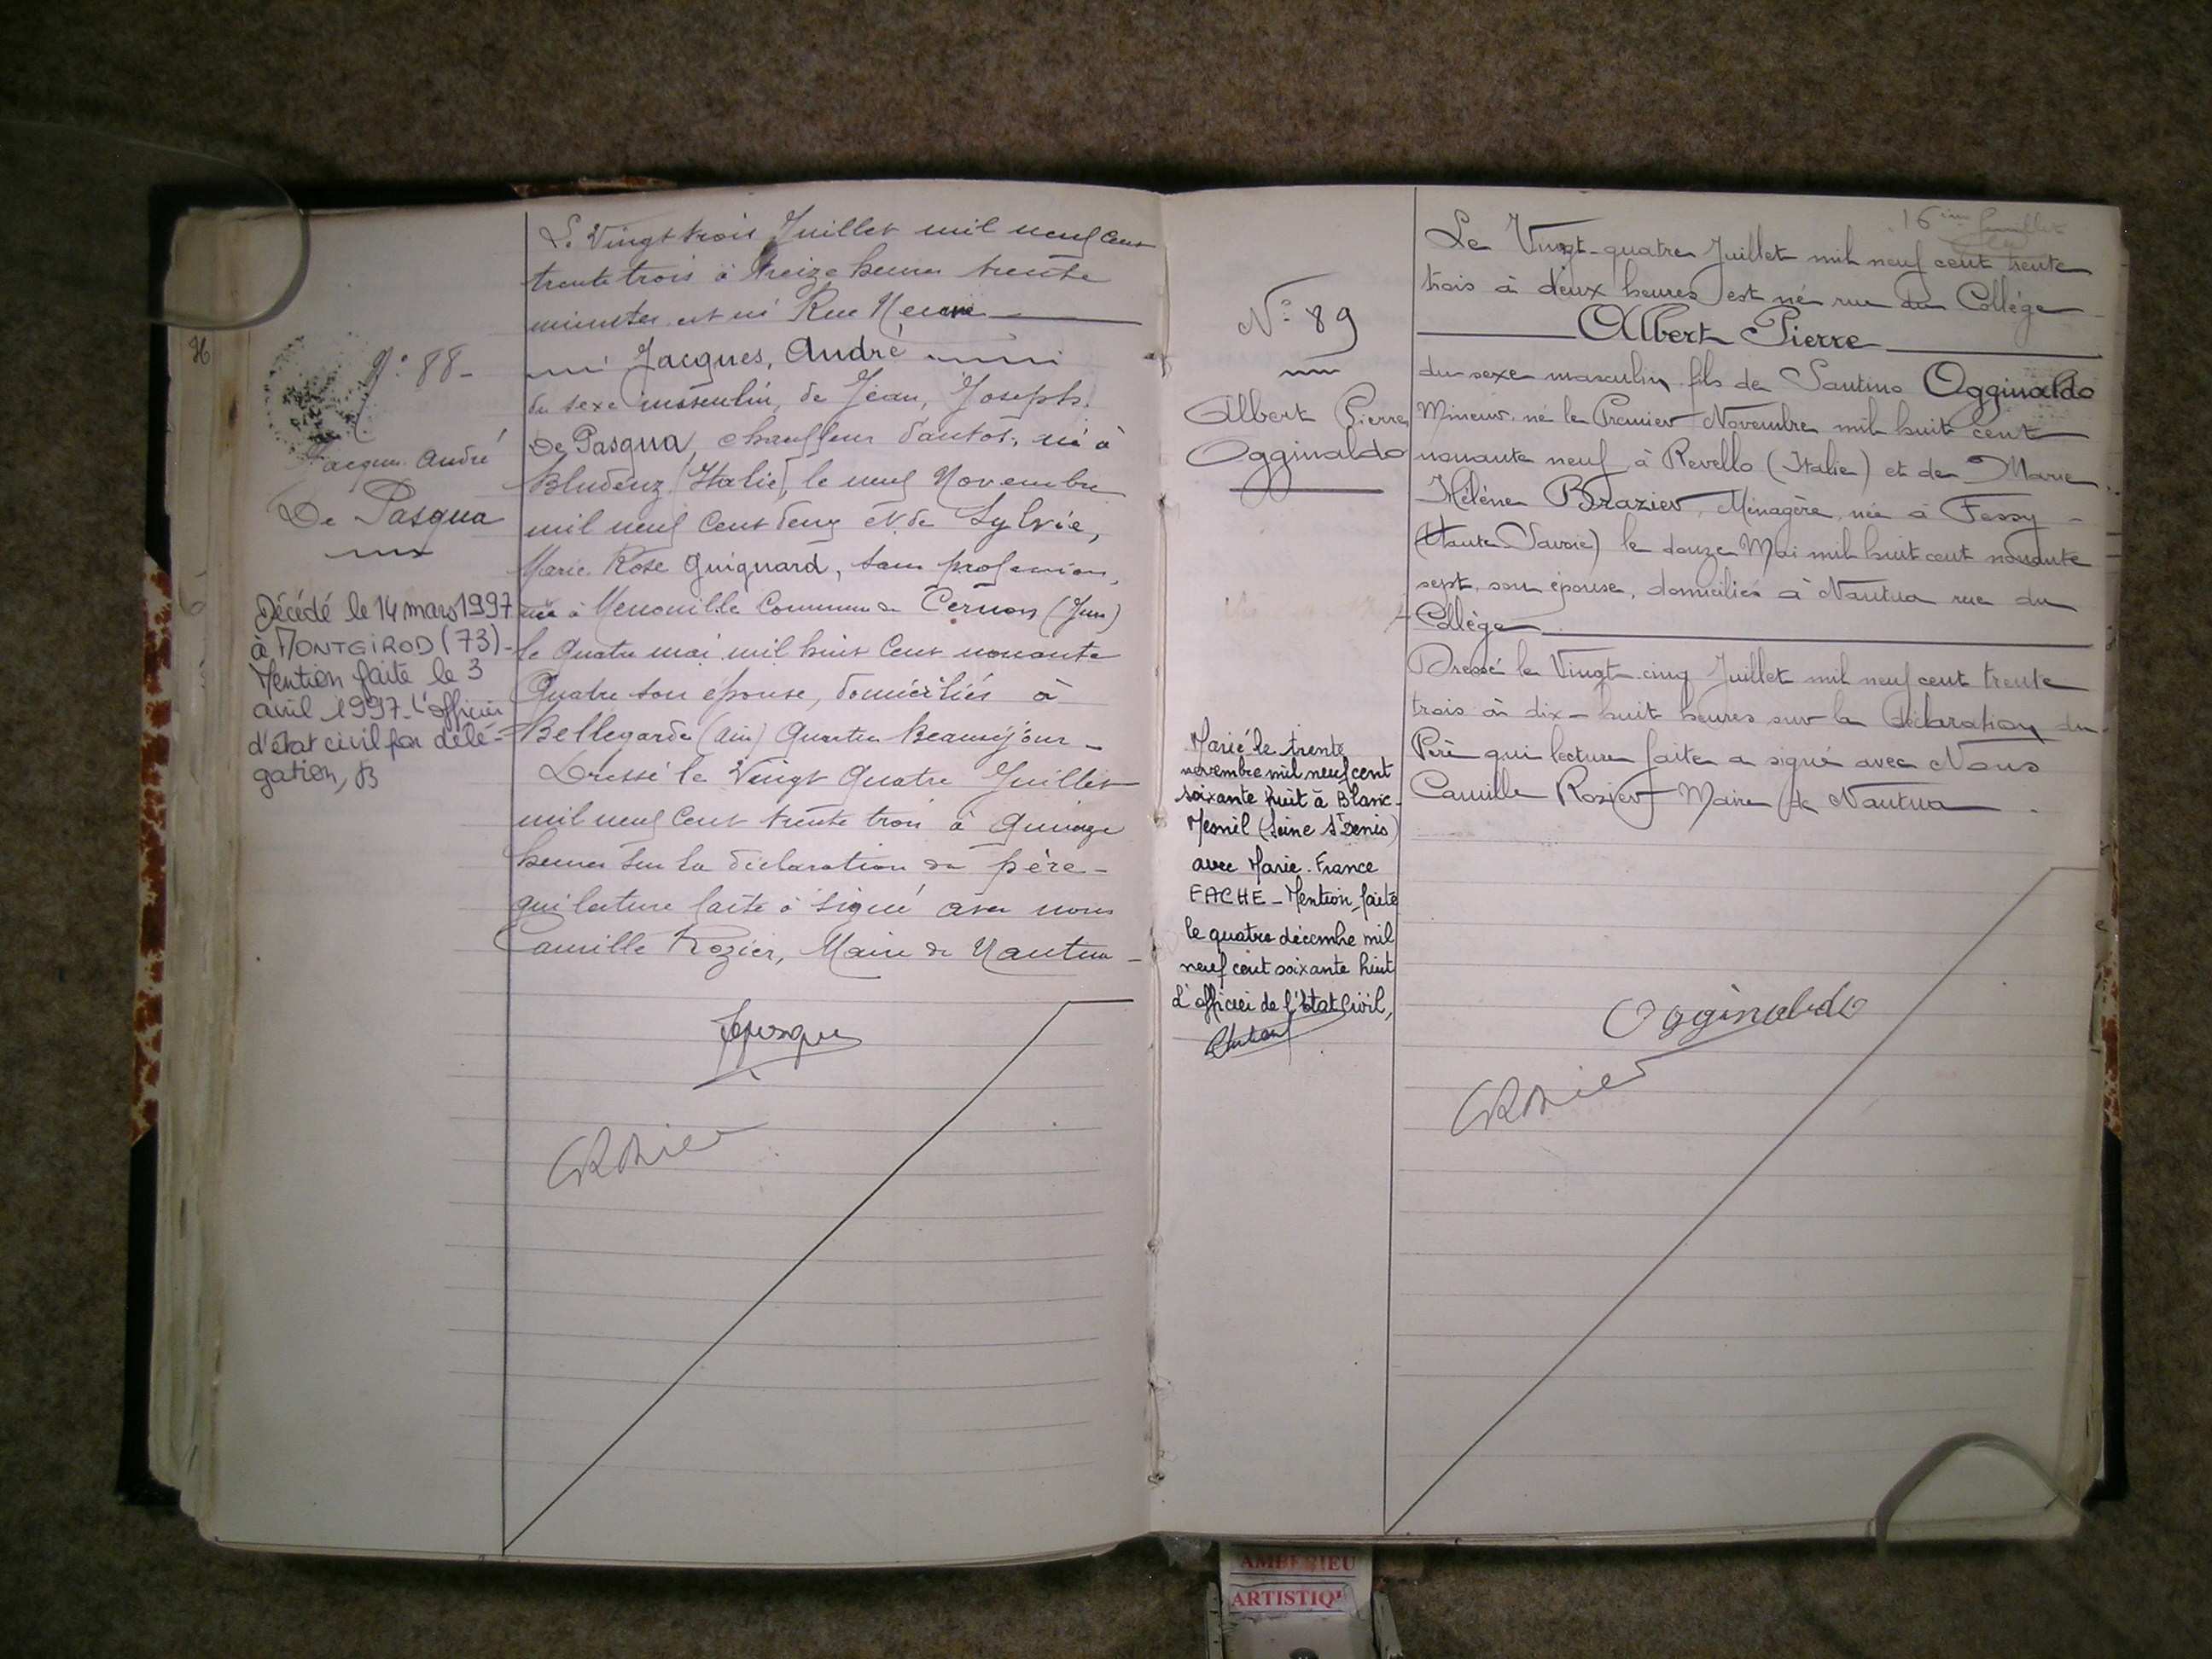 Le Vingt trois Juillet mil neuf cent
trente trois à treize heures trente
minutes est né Rue Neuve
Jacques, André
du sexe masculin, de Jean, Joseph
De Pasqua, chauffeur d'autos, né à
Bludenz (Italie), le neuf Novembre
mil neuf cent deux et de Sylvie,
Marie Rose Guignard, sans profession,
née à Menouille Commune de Cernon (Jura)
le Quatre mai mil huit cent nonante
Quatre son épouse, domiciliés à
Bellegarde (Ain) Quartier Beauséjour -
Dressé le Vingt Quatre Juillet
mil neuf cent trente trois à quinze
heures sur la déclaration du père -
qui lecture faite à signé avec nous
Camille Rozier, Maire de Nantua -
CRozier
N° 88 -
Jacques André
De Pasqua
Décédé le 14 mars 1997
à MONTGIROD (73) -
Mention faite le 3
avril 1997 - L'officier
d'état civil par délé-
gation,
16ème feuillet
Le Vingt-quatre Juillet mil neuf cent trente
trois à deux heures est né rue du Collège
Albert Pierre
du sexe masculin fils de Santino Ogginaldo
Mineur, né le Premier Novembre mil huit cent
nonante neuf à Revello (Italie) et de Marie
Hélène Brazier, Ménagère, née à Fessy -
(Haute-Savoie) le douze Mai mil huit cent nonante
sept, son épouse, domiciliés à Nantua rue du
Collège
Dressé le Vingt-cinq Juillet mil neuf cent trente
trois à dix-huit heures sur la déclaration du
Père qui lecture faite a signé avec Nous
Camille Rozier Maire de Nantua
Ogginaldo
CRozier
N° 89
Albert Pierre
Ogginaldo
Marié le trente
novembre mil neuf cent
soixante huit à Blanc-
Mesnil (Seine St Denis)
avec Marie-France
FACHE - Mention faite
le quatre décembre mil
neuf cent soixante huit
L'officier de l'Etat Civil,
AMBERIEU
ARTISTIQ